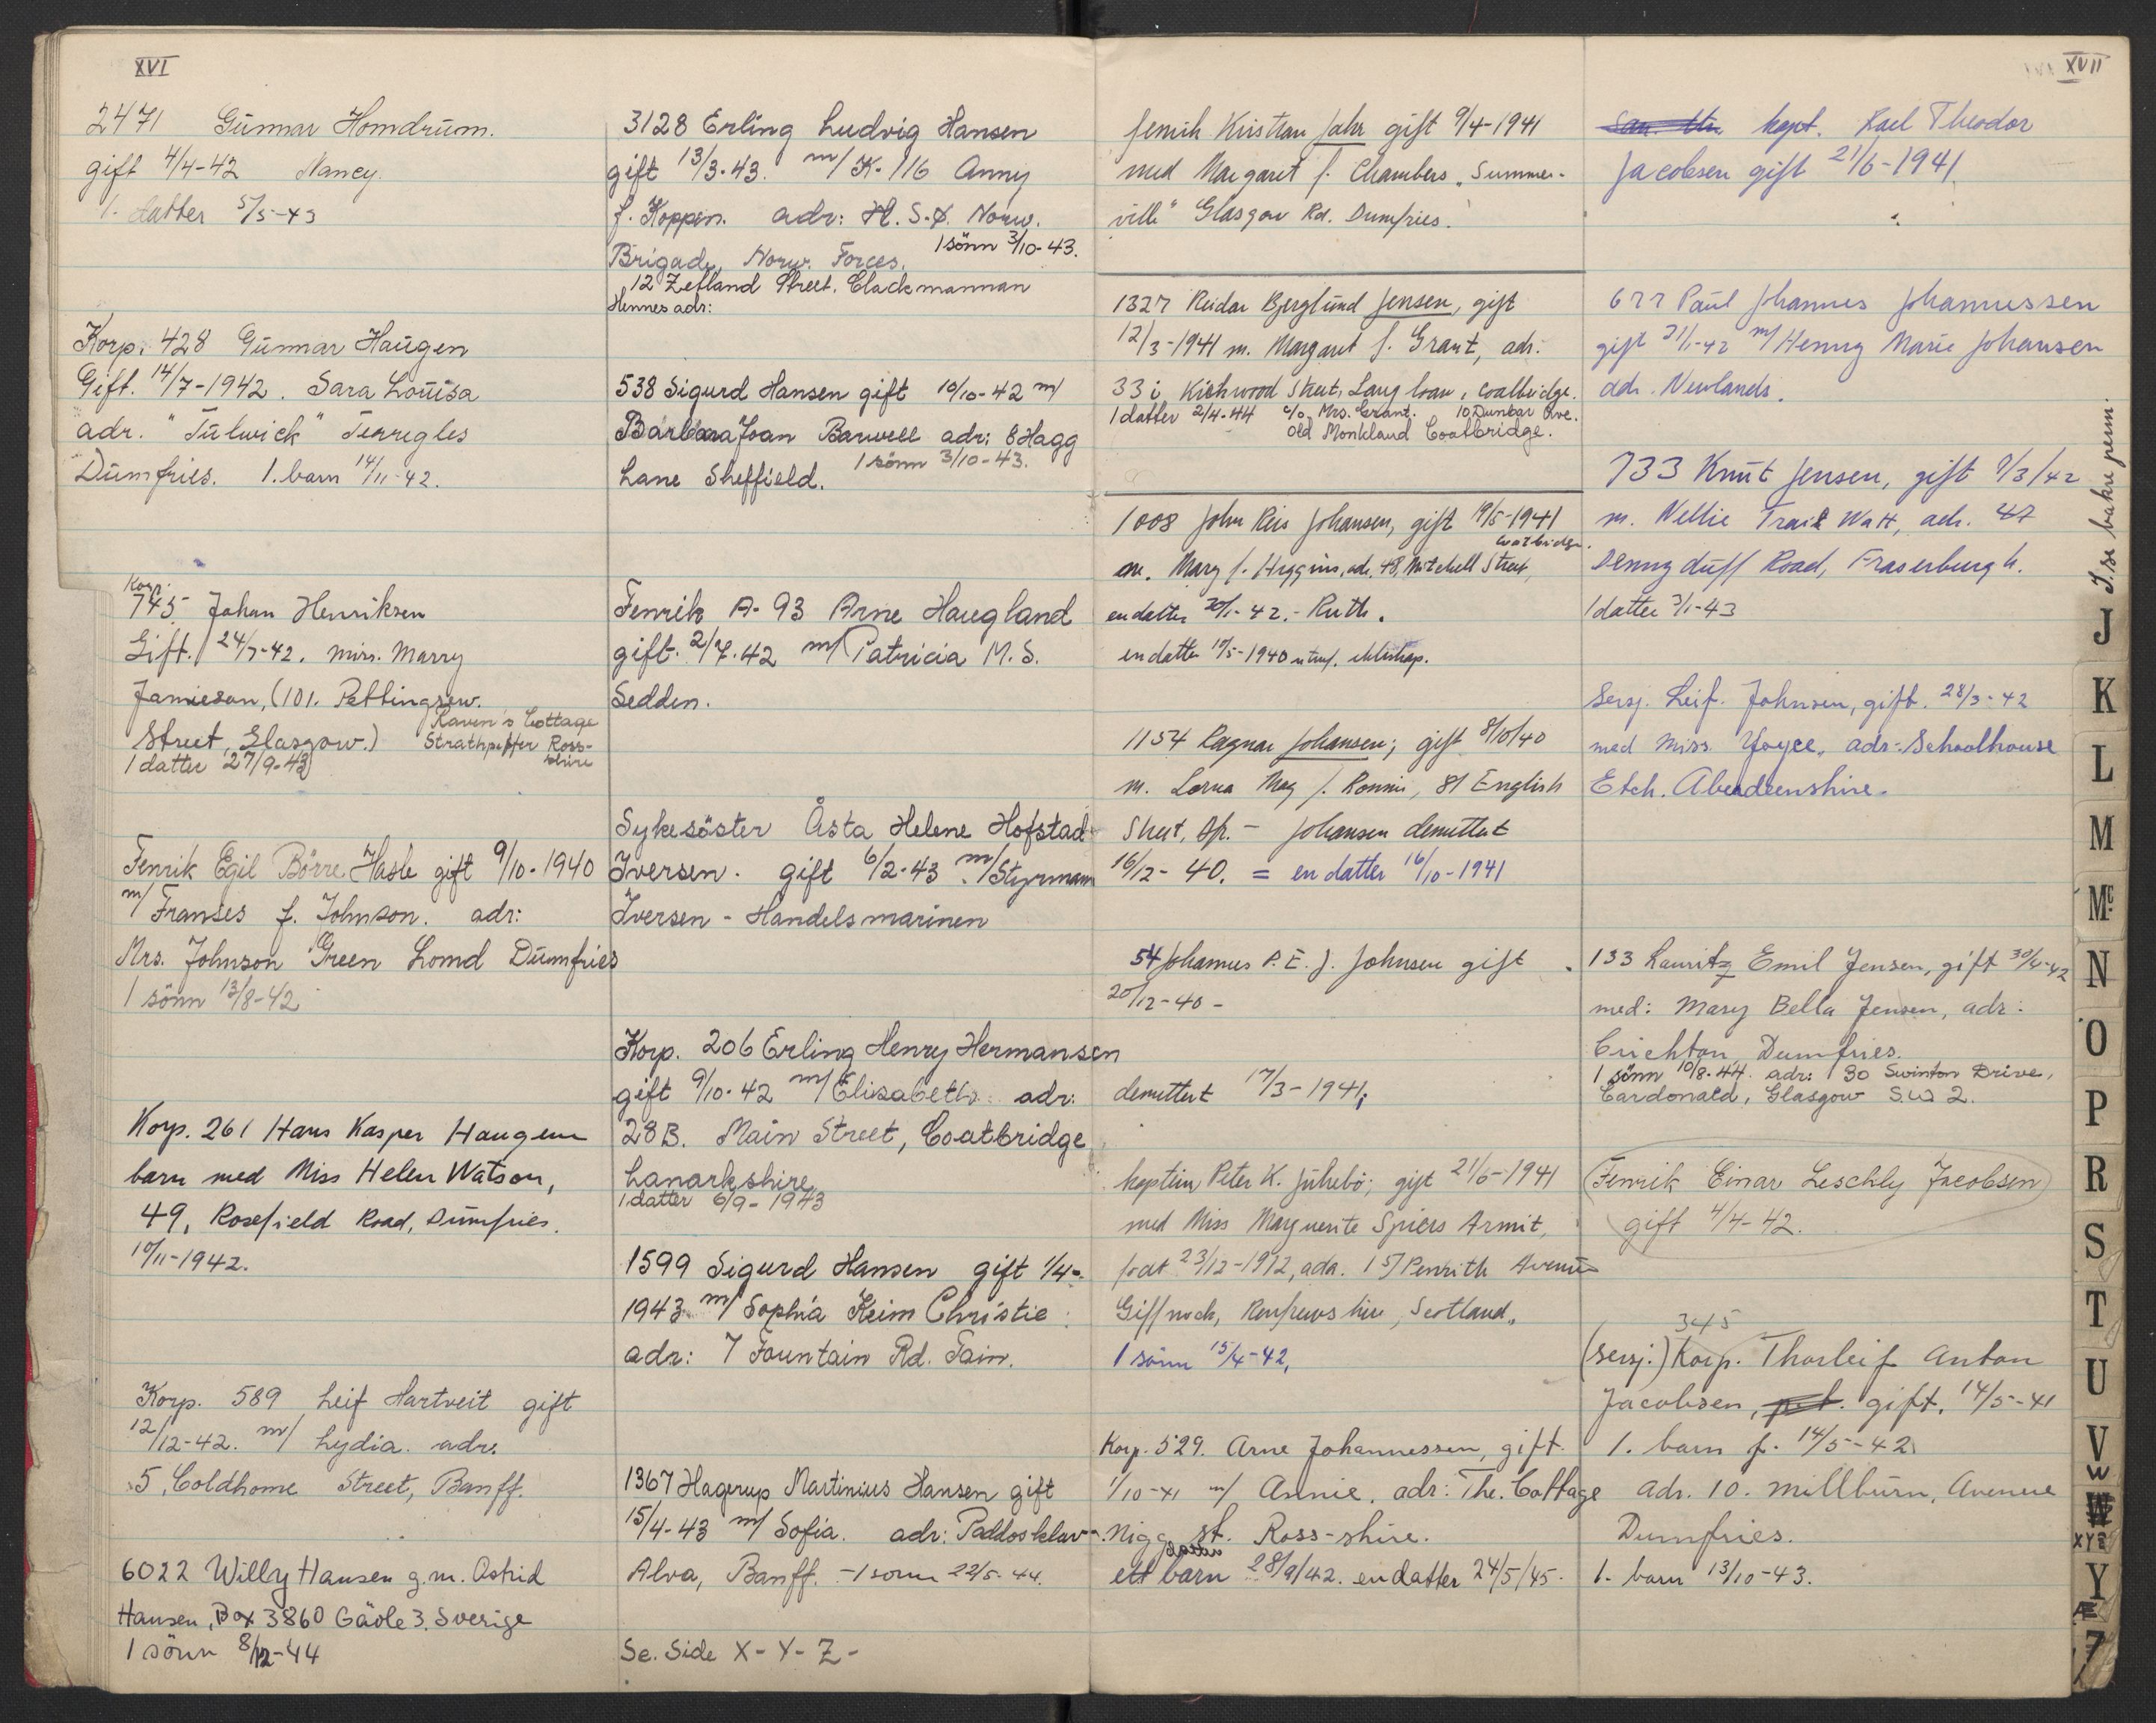 XVI
2471 Gunnar Homdrum.
gift 4/4-42 Nancy.
1. datter 5/5-43
Korp. 428 Gunnar Haugen
Gift. 14/7-1942. Sara Louisa
adr. "Tulwick" Terregles
Dumfries. 1. barn 14/11-42.
Korp.
745. Johan Henriksen
Gift. 24/7-42. miss. Marry
Jamieson, (101. Pettingrew.
Street, Glasgow.) Raven's Cottage
Strathpeffer Ross-
shire
1 datter 27/9-43
Fenrik Egil Börre Hasle gift 9/10-1940
m/ Franses f. Johnson. adr:
Mrs. Johnson Green Lomd Dumfries
1 sönn 13/8-42
Korp. 261 Hans Kasper Haugen
barn med Miss Helen Watson,
49, Rosefield Road, Dumfries.
10/11-1942.
Korp. 589 Leif Hartveit gift
12/12-42. m/ Lydia. adr.
5, Coldhome Street, Banff.
6022 Willy Hansen g.m. Astrid
Hansen, Box 3860 Gävle 3. Sverige
1 sönn 8/12-44
3128 Erling Ludvig Hansen
gift 13/3-43. m/ K-116 Anny
f. Koppen. adr: H.S.X. Norw.
Brigade, Norw. Forces. 1 sönn 3/10-43.
12 Zetland Street. Clackmannan
Hennes adr:
538 Sigurd Hansen gift 10/10-42 m/
Barbara Joan Barwell adr: 8 Hagg
Lane Sheffield. 1 sönn 3/10-43.
Fenrik A-93 Arne Haugland
gift. 2/7.42 m/ Patricia M.S.
Sedden.
Sykesöster Åsta Helene Hofstad
Iversen. gift 6/2-43 m/ Styrmann
Iversen - Handelsmarinen
Korp. 206 Erling Henry Hermansen
gift 9/10-42 m/ Elisabeth adr:
28B. Main Street, Coatbridge
Lanarkshire
1 datter 6/9-1943
1599 Sigurd Hansen gift 1/4-
1943 m/ Sophia Keim Christie
adr: 7 Fountain Rd. Tain.
1367 Hagerup Martinius Hansen gift
15/4-43 m/ Sofia. adr: Paddosklav
Alva, Banff. - 1 sönn 22/5-44.
Se. Side X-Y-Z-
XVII
Fenrik Kristian Jahr gift 9/4-1941
med Margaret f. Chambers „Summer-
ville" Glasgow Rd. Dumfries.
1327 Reidar Bjerglund Jensen, gift
12/3-1941 m. Margaret f. Grant, adr:
33 i, Kirkwood Street, Langloan, Coatbridge.
1 datter 2/4-44 c/o Mrs. Grant. 10 Dunbar Ave.
Old Monkland Coatbridge.
1008 John Reis Johansen, gift 19/5-1941
Coatbridge
m. Mary f. Higgins, adr. 48, Mitchell Street,
en datter 20/1-42.- Ruth.
en datter 17/5-1940 utenf. ekteskap.
1154 Ragnar Johansen; gift 8/10/40
m. Lorna May f. Ronnie, 81 English
Street, Df. - Johansen demittert
16/12-40. = en datter 16/10-1941
54 Johannes P.E.J. Johnsen gift
20/12-40-
demittert 17/3-1941;
kaptein Peter K. Julsebö; gift 21/6-1941
med Miss Marguerite Spiers Armit,
født 23/12-1912, adr. 157 Penrith Avenue
Giffnock, Renfrewshire, Scotland.
1 sönn 15/4-42,
Korp. 529. Arne Johannessen, gift.
1/10-41 m/ Annie. adr: The. Cottage
Nigg st. Ross-shire.
ett barn 28/9/42. en datter 24/5/45.
kapt. Karl Theodor
Jacobsen gift 21/6-1941
677 Paul Johannes Johannessen
gift 31/1-42 m/ Henny Marie Johansen
adr. Newlands.
733 Knut Jensen, gift 9/3/42
m. Nellie Trail Watt, adr. 47
Dennyduff Road, Fraserburgh.
1 datter 3/1-43
Sersj. Leif. Johnsen, gift. 28/3-42
med miss. Yoyce, adr: Schoolhouse
Etch. Aberdeenshire.
133 Lauritz Emil Jensen, gift 30/4-42
med: Mary Bella Jensen, adr:
Crichton Dumfries.
1 sönn 10/8-44. adr: 130 Swinton Drive,
Cardonald, Glasgow S.W 2.
Fenrik Einar Leschly Jacobsen
gift 4/4-42.
345
(sersj.) Korp. Thorleif Anton
Jacobsen, gift. 14/5-41
1. barn f. 14/5-42
adr. 10. Millburn, Avenue
Dumfries.
1. barn 13/10-43.
J. se bakre perm.
J
K
L
M
Mc
N
O
P
R
S
T
U
V
W
W
XYZ
Y
Æ
Z